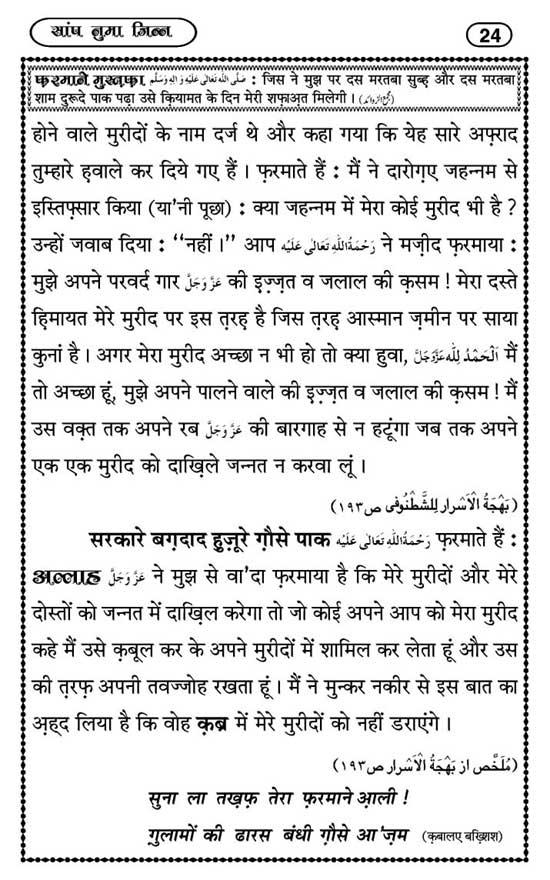 सांप नुमा जिन्न
24
फ़रमाने मुस्त़फ़ा صَلَّى اللهُ تَعَالٰى عَلَيْهِ وَاٰلِهٖ وَسَلَّم : जिस ने मुझ पर दस मरतबा सुब्ह़ और दस मरतबा
शाम दुरूदे पाक पढ़ा उसे क़ियामत के दिन मेरी शफ़ाअ़त मिलेगी । (مجمع الزوائد)
होने वाले मुरीदों के नाम दर्ज थे और कहा गया कि येह सारे अफ़्राद
तुम्हारे ह़वाले कर दिये गए हैं । फ़रमाते हैं : मैं ने दारोग़ए जहन्नम से
इस्तिफ़्सार किया (या'नी पूछा) : क्या जहन्नम में मेरा कोई मुरीद भी है ?
उन्हों जवाब दिया : ‘‘नहीं ।’’ आप رَحْمَةُ اللهِ تَعَالٰى عَلَيْهِ ने मज़ीद फ़रमाया :
मुझे अपने परवर्द गार عَزَّوَجَلَّ की इ़ज़्ज़त व जलाल की क़सम ! मेरा दस्ते
हि़मायत मेरे मुरीद पर इस त़रह़ है जिस त़रह़ आस्मान ज़मीन पर साया
कुनां है । अगर मेरा मुरीद अच्छा न भी हो तो क्या हुवा, اَلْحَمْدُ لِلّٰه عَزَّوَجَلَّ मैं
तो अच्छा हूं, मुझे अपने पालने वाले की इ़ज़्ज़त व जलाल की क़सम ! मैं
उस वक़्त तक अपने रब عَزَّوَجَلَّ की बारगाह से न हटूंगा जब तक अपने
एक एक मुरीद को दाख़िले जन्नत न करवा लूं ।
(بَهْجَةُ الْاَسْرَار لِلشَّطْنُوفِى ص١٩٣)
सरकारे बग़दाद हु़ज़ूरे ग़ौसे पाक رَحْمَةُ اللهِ تَعَالٰى عَلَيْهِ फ़रमाते हैं :
अल्लाह عَزَّوَجَلَّ ने मुझ से वा'दा फ़रमाया है कि मेरे मुरीदों और मेरे
दोस्तों को जन्नत में दाख़िल करेगा तो जो कोई अपने आप को मेरा मुरीद
कहे मैं उसे क़बूल कर के अपने मुरीदों में शामिल कर लेता हूं और उस
की त़रफ़ अपनी तवज्जोह रखता हूं । मैं ने मुन्कर नकीर से इस बात का
अ़ह्द लिया है कि वोह क़ब्र में मेरे मुरीदों को नहीं डराएंगे ।
(مُلَخَّص از بَهْجَةُ الْاَسْرَار ص١٩٣)
सुना ला तख़फ़ तेरा फ़रमाने आ़ली !
ग़ुलामों की ढारस बंधी ग़ौसे आ'ज़म (क़बालए बख़्शिश)